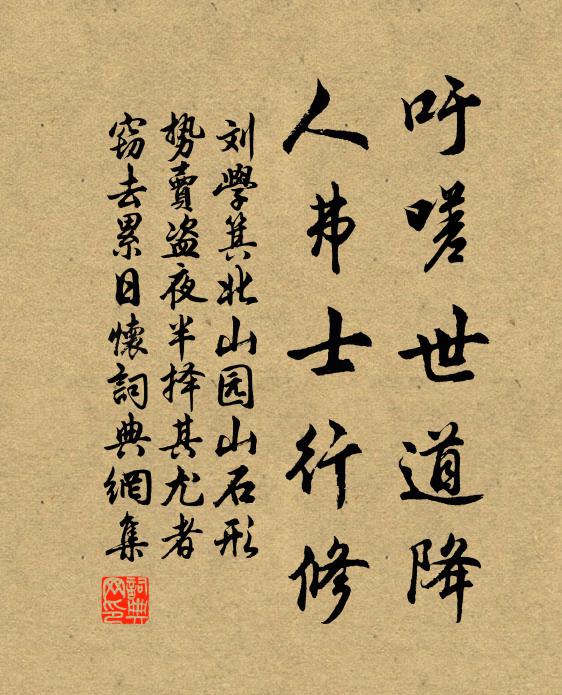 吁嗟世道降
人弗士行修
刘學箕北山园山石形
势賣盗夜半择其尤者
窃去累日懷詞典網集
詞典
网印